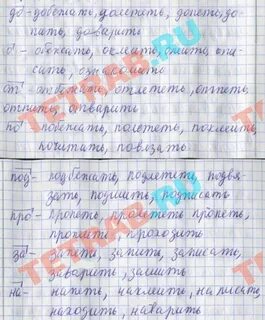 до- добежать, долететь, допеть, до
пать, доварить
о - обежать, оклеить, сшить, опи-
сить, ознакомить
от- отбежать, отлететь, отпеть,
отпить, отварить
по- побежать, полететь, поклеить,
почитать, повязать
под- подбежать, подлететь, подвя-
зать, подшить, подписать
про- пропеть, пролететь пропеть,
прошить проходить
за- запеть, запить, записать,
заварить, зашить
на- напеть, наклеить, написать,
находить, наварить
TETRAB.RU
TETRAB.RU